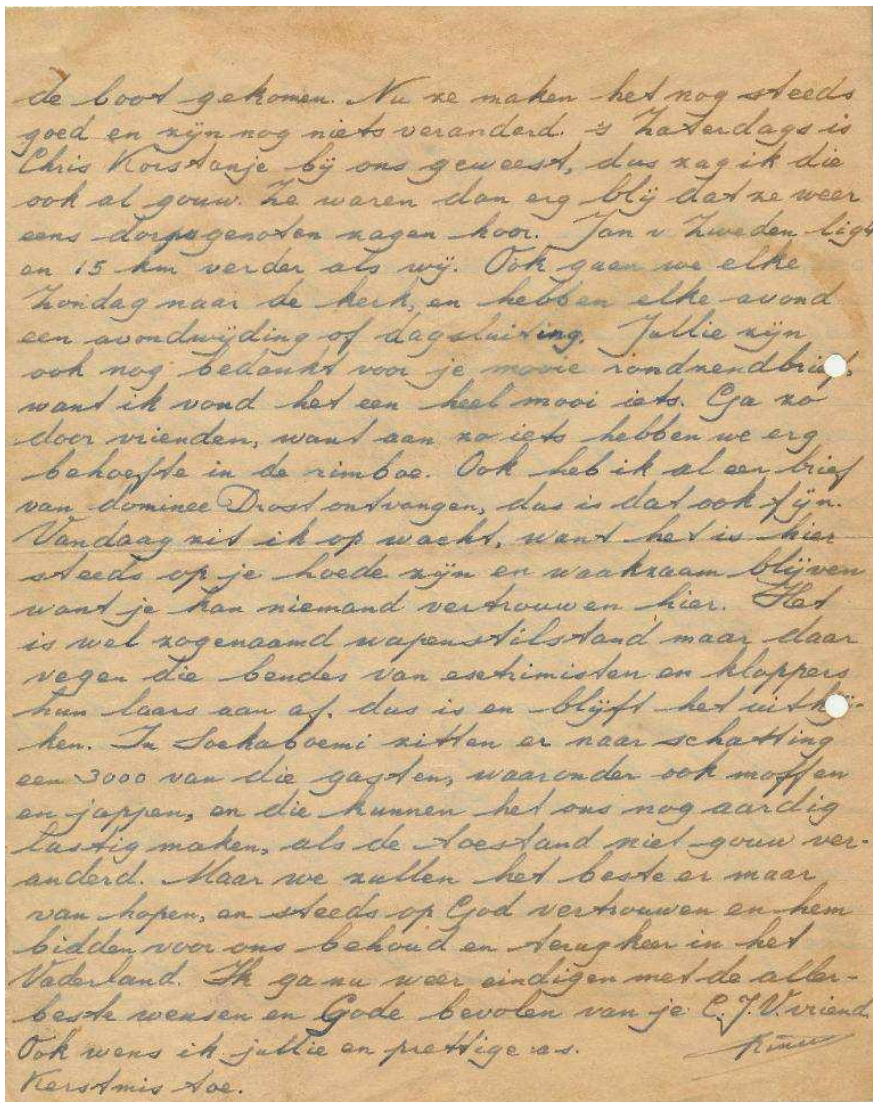 de boot gekomen. Nu ze maken het nog steeds
goed en zijn nog niets veranderd. 's Zaterdags is
Chris Korstanje bij ons geweest, dus zag ik die
ook al gouw. Ze waren dan erg blij dat ze weer
eens dorpsgenoten zagen hoor. Jan v Zweden ligt
an 15 km verder als wij. Ook gaen we elke
Zondag naar de kerk, en hebben elke avond
een avondwijding of dagsluiting. Jullie zijn
ook nog bedankt voor je mooie rondzendbrief.
want ik vond het een heel mooi iets. Ga zo
door vrienden, want aan zo iets hebben we erg
behoefte in de rimboe. Ook heb ik al een brief
van dominee Drost ontvangen, dus is dat ook fijn.
Vandaag zit ik op wacht, want het is hier
steeds op je hoede zijn en waakzaam blijven
want je kan niemand vertrouwen hier. Het
is wel zogenaamd wapenstilstand maar daar
vegen die bendes van esctrimisten en kloppers
hun laars aan af. dus is en blijft het uitkij-
ken. In Soekaboemi zitten er naar schatting
een 3000 van die gasten, waaronder ook moffen
en jappen, en die kunnen het ons nog aardig
lastig maken, als de toestand niet gouw ver-
anderd. Maar we zullen het beste er maar
van hopen, en steeds op God vertrouwen en hem
bidden voor ons behoud en terugkeer in het
Vaderland. Ik ga nu weer eindigen met de aller-
beste wensen en Gode bevolen van je C.J.V. vriend
Ook wens ik jullie en prettige as.
Kerstmis toe.